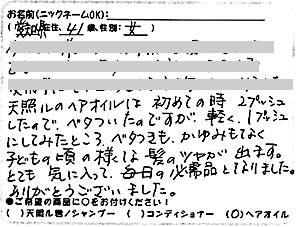 お名前(ニックネームOK):
(愛媛県在住、41歳、性別: 女 )
天照ルのヘアオイルは 初めての時 2プッシュ
したので、ベタついたのですが、軽く、1プッシュ
にしてみたところ、ベタつきも、かゆみもなく
子どもの頃の様な 髪のツヤが 出ます。
とても 気に入って、毎日の必需品となりました。
ありがとうございました。
●ご希望の商品に○をお付けください!
( )天照ル君ノシャンプー ( )コンディショナー (○)ヘアオイル